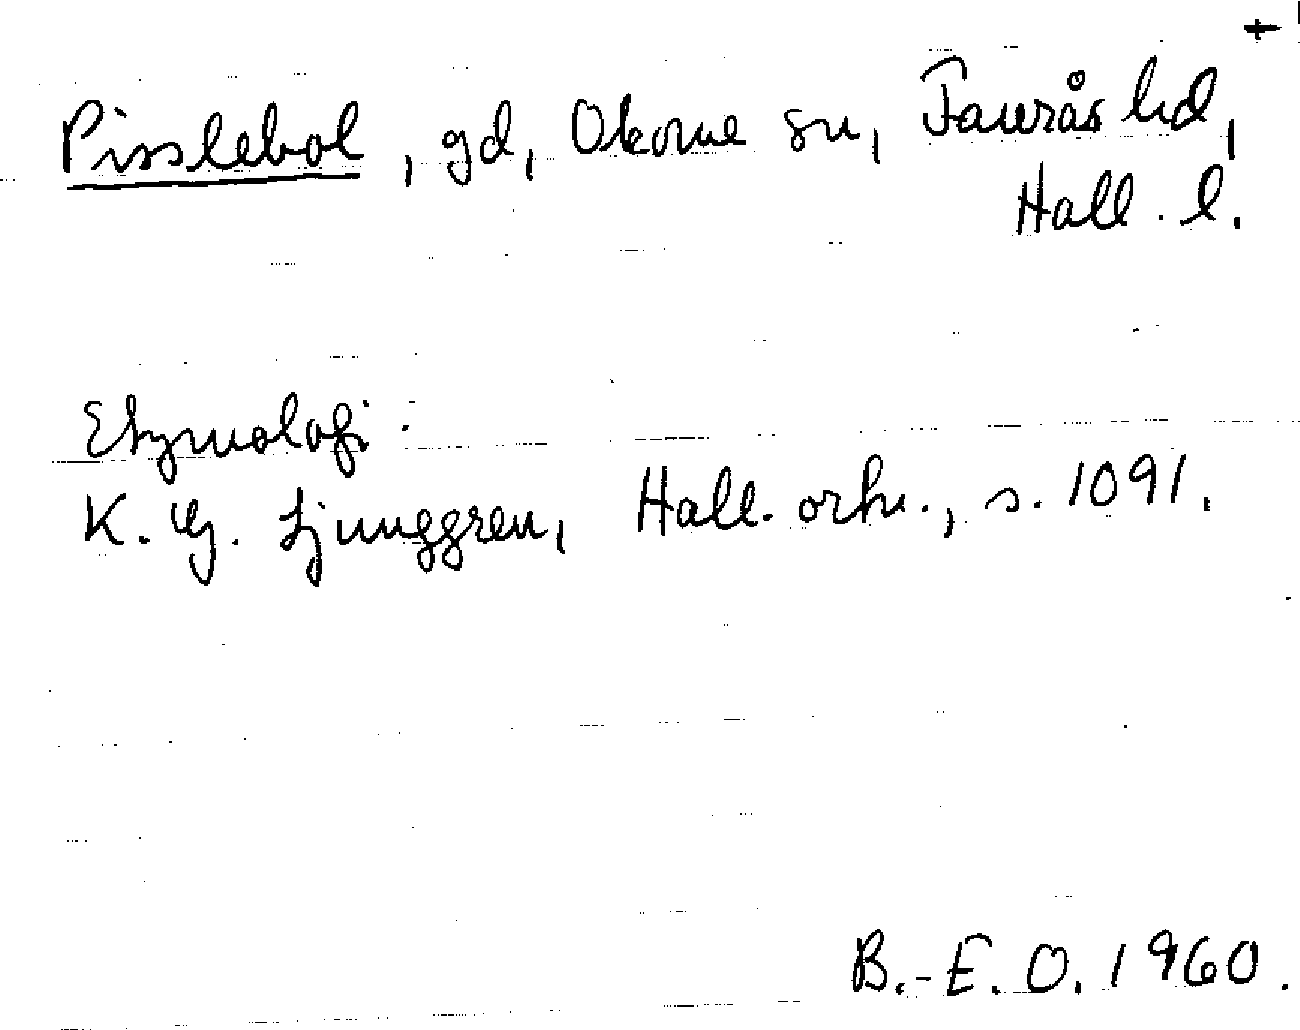 +
Pisslebol, gd, Okome sn, Faurås hd,
Hall. l.
Etymologi:
K. G. Ljunggren, Hall. ortn., s. 1091.
B.-E. O. 1960.